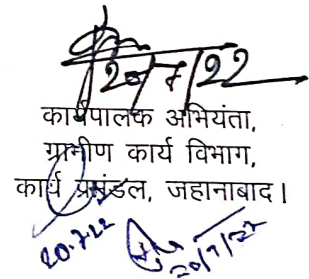 20/7/22
कार्यपालक अभियंता,
ग्रामीण कार्य विभाग,
कार्य प्रमंडल, जहानाबाद।
20.7.22
20/7/22